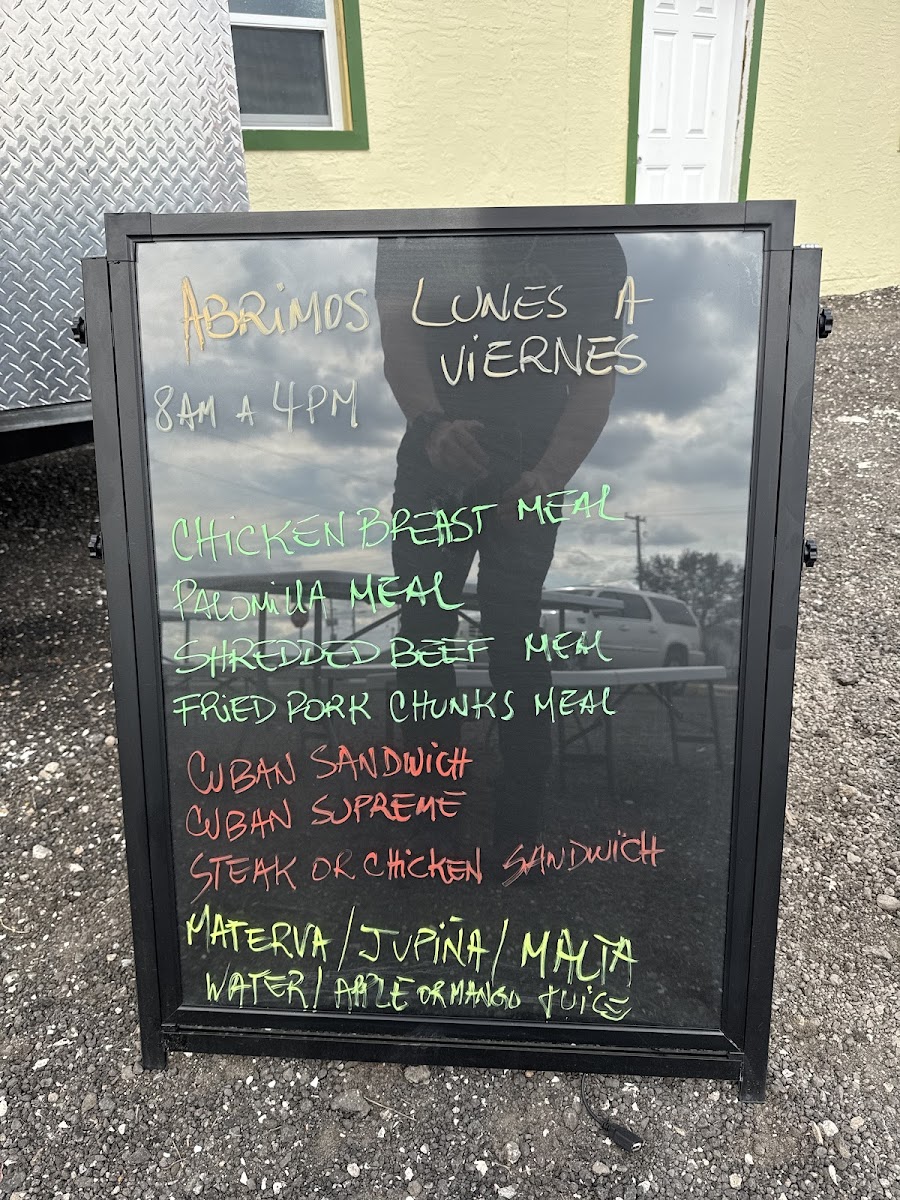 ABRIMOS LUNES A
VIERNES
8AM A 4PM
CHICKEN BREAST MEAL
PALOMILLA MEAL
SHREDDED BEEF MEAL
FRIED PORK CHUNKS MEAL
CUBAN SANDWICH
CUBAN SUPREME
STEAK OR CHICKEN SANDWICH
MATERVA/JUPIÑA/MALTA
WATER/APPLE OR MANGO JUICE